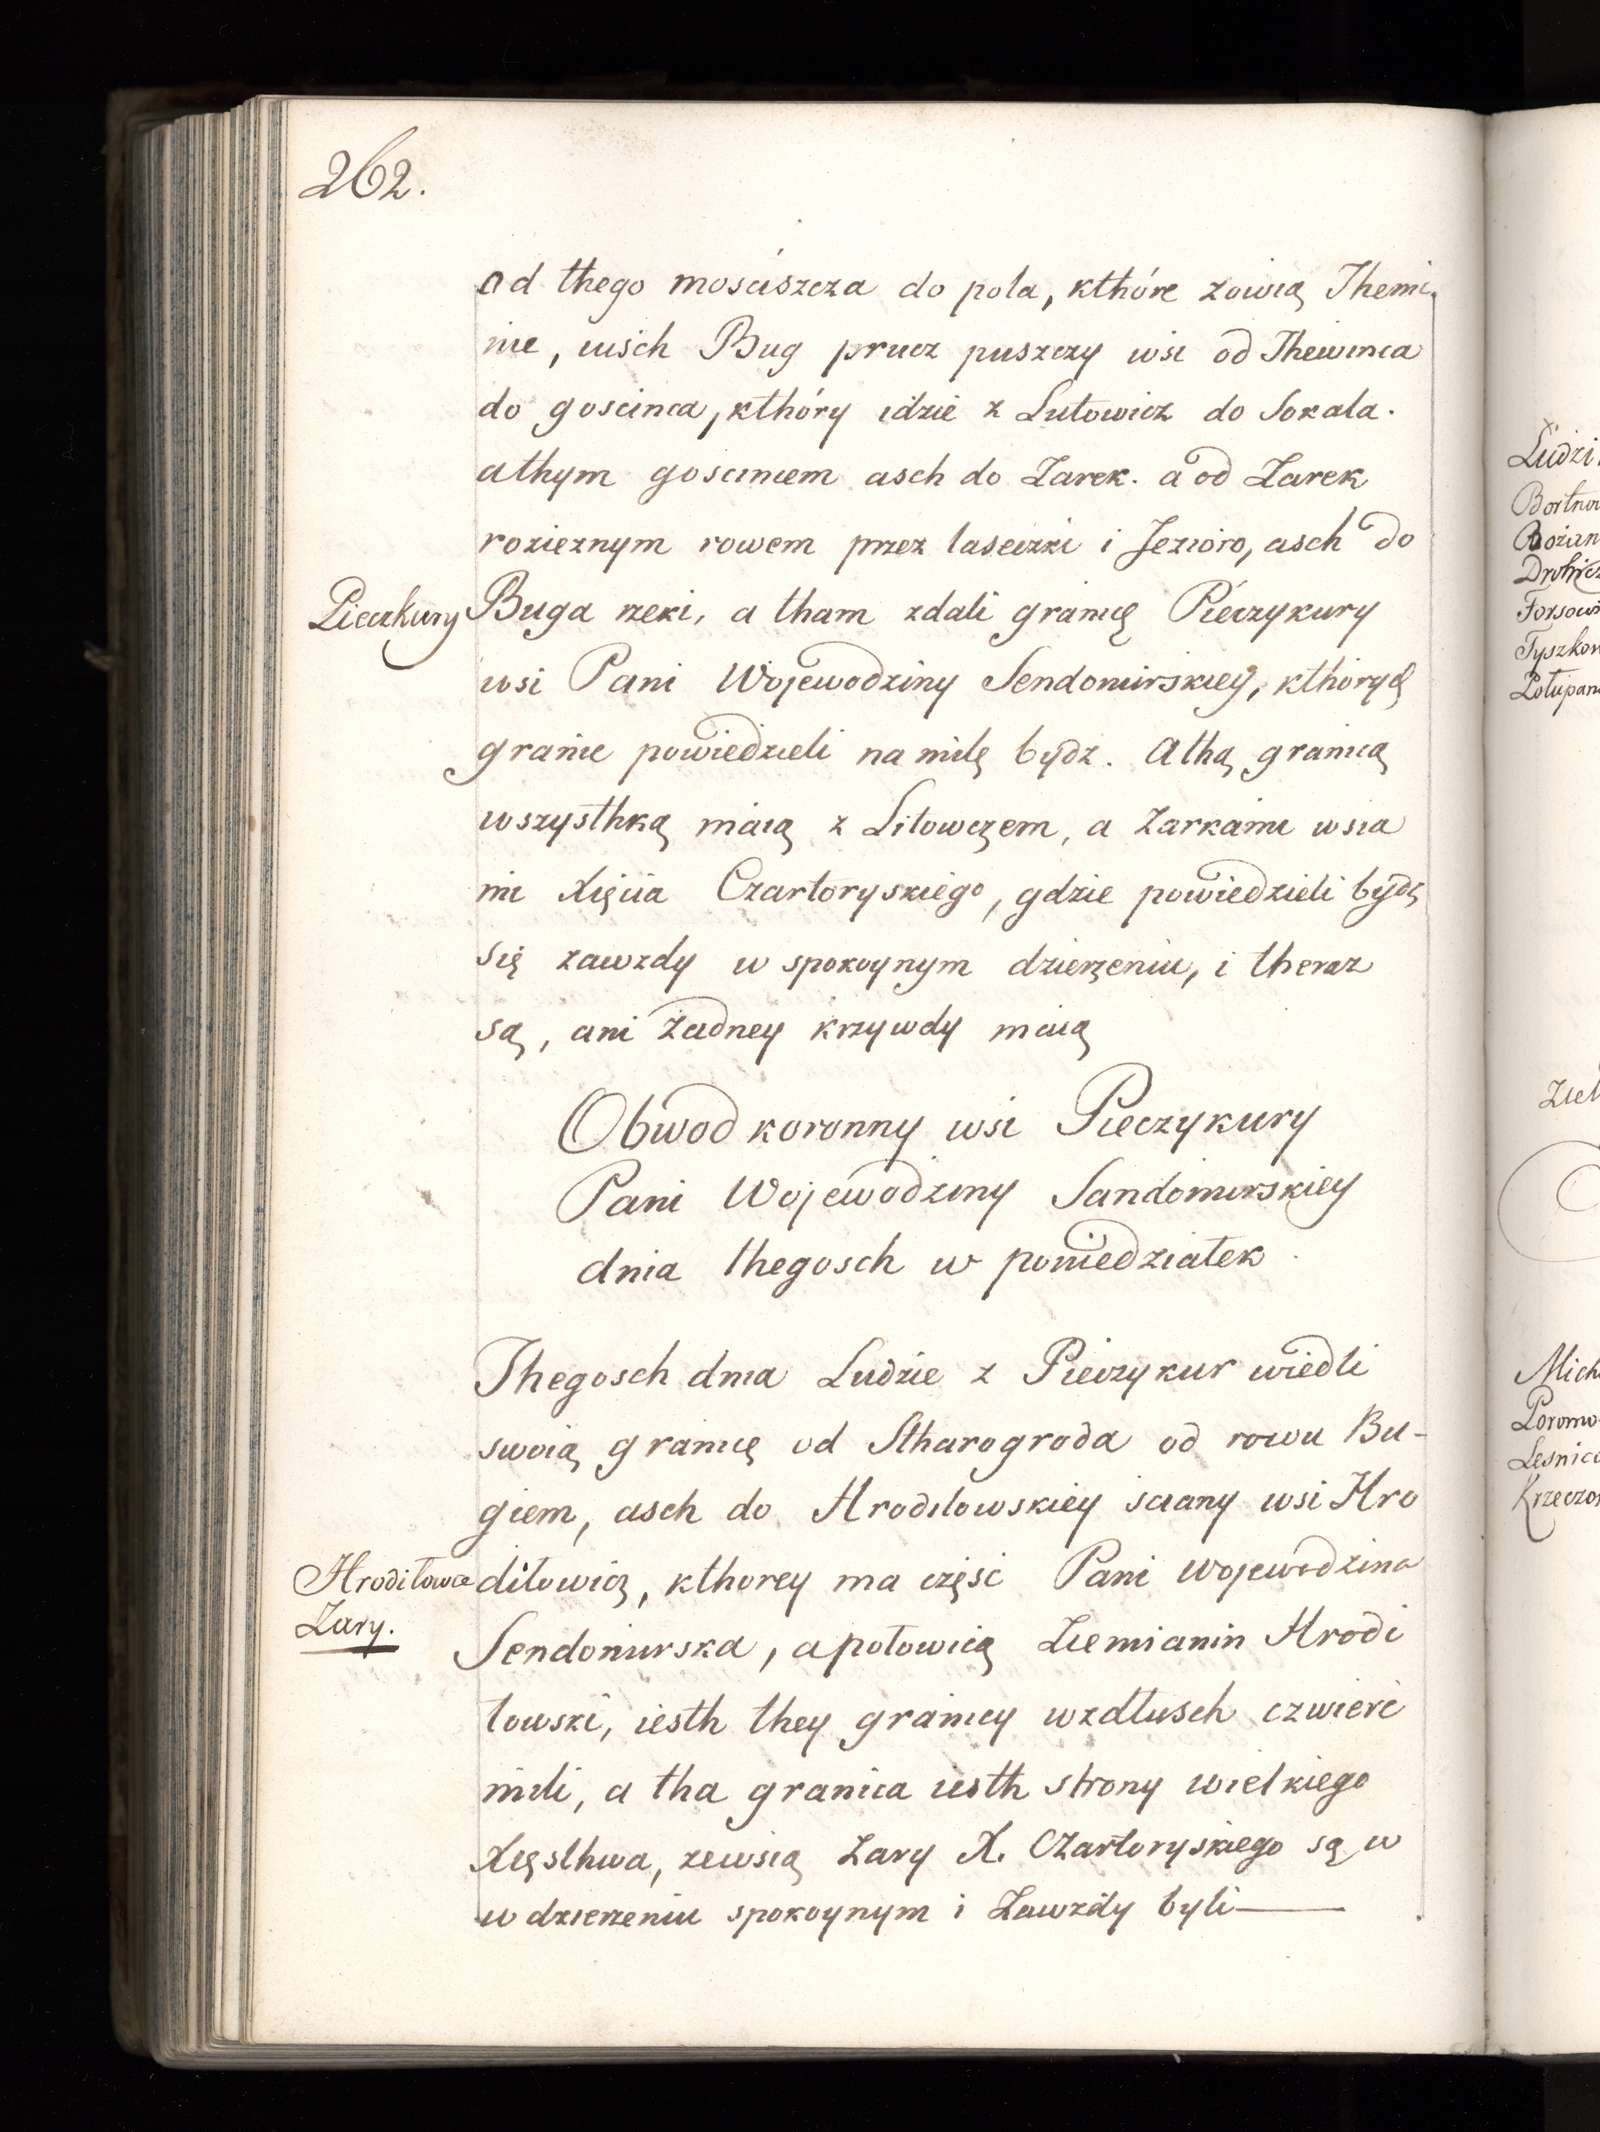 262.
od thego mosciszcza do pola, kthóre zowią Themi,
nie, uisch Bug prucz puszczy wsi od Thewinca
do goscinca, kthóry idzie z Lutowicz do Sokala.
athym goscincem asch do Zarek. a od Zarek
rozieznym rowem przez laseczki i Jezioro, asch do
Pieczkury
Buga rzeki, a tham zdali granicę Pieczykury
wsi Pani Wojewodziny Sendomirskiey, kthorych
granic powiedzieli na milę bydz. Athą granicą
wszysthką maią z Litowczem, a Zarkami wsia
mi Xięcia Czartoryskiego, gdzie powiedzieli bydz
się zawzdy w spokoynym dzierzeniu, i theraz
są, ani żadney krzywdy maią
Obwod koronny wsi Pieczykury
Pani Wojewodziny Sandomirskiey
dnia thegosch w poniedziałek
Thegosch dnia Ludzie z Pieczykur wiedli
swoią granicę od Stharogroda od rowu Bu-
giem, asch do Hrodiłowskiey sciany wsi Hro
Hrodiłowce
Zary.
diłowicz, kthorey ma część Pani Wojewodzina
Sendomirska, a połowicą Ziemianin Hrodi
łowski, iesth they granicy wzdłusch czwierć
mili, a tha granica iesth strony wielkiego
Xięsthwa, zewsią Zary X. Czartoryskiego są w
w dzierzeniu spokoynym i Zawżdy byli
Michа
Krzeczo